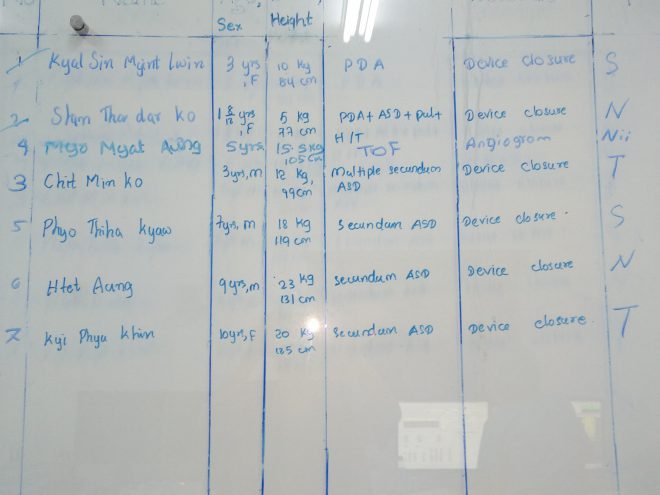 Sex Height
1 Kyal Sin Myint Lwin 3 yrs, F 10 Kg 84 cm PDA Device closure S
2 Shun Thar dar ko 1 8/12 yrs, F 5 kg 77 cm PDA + ASD + pul + H/T Device closure N
4 Myo Myat Aung 5 yrs 15.5 kg 105 cm TOF Angiogram Nii
3 Chit Min ko 3 yrs, m 12 kg, 99 cm multiple secundum ASD Device closure T
5 Phyo Thiha Kyaw 7 yrs, m 18 Kg 119 cm secundum ASD Device closure S
6 Htet Aung 9 yrs, m 23 Kg 131 cm secundum ASD Device closure N
7 Kyi Phyu Khin 10 yrs, F 20 Kg 125 cm secundum ASD Device closure T